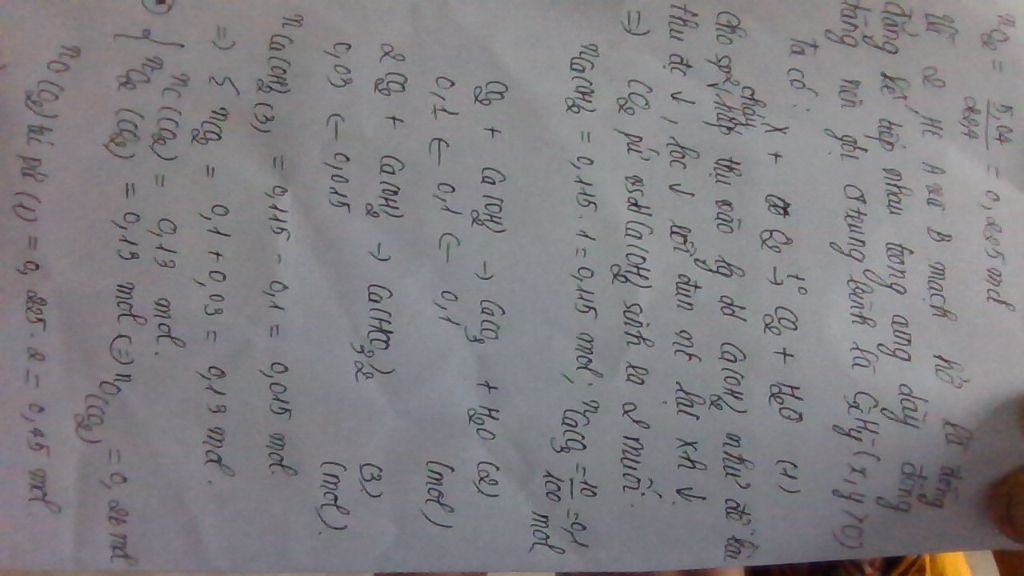 nO2 = 5,04 / 22,4 = 0,225 mol
Vì 2 HC A và B mạch hở là đồng
đẳng kế tiếp nhau trong cùng dãy đồng
đẳng nên gọi CT chung là CxHy (x, y > 0)
Ta có:
X + O2 t° → CO2 + H2O (1)
Cho sp cháy hấp thụ vào dd Ca(OH)2 như đề bài
thu đc ↓, lọc ↓ rồi đun nc lại xh ↓
⇒ CO2 pứ với Ca(OH)2 sinh ra 2 muối.
nCa(OH)2 = 0,115 . 1 = 0,115 mol; nCaCO3 = 10 / 100 = 0,1 mol
CO2 + Ca(OH)2 → CaCO3 + H2O (2)
0,1 ← 0,1 ← 0,1 (mol)
2CO2 + Ca(OH)2 → Ca(HCO3)2 (3)
0,03 ← 0,015 (mol).
nCa(OH)2 (3) = 0,115 - 0,1 = 0,015 mol
⇒ Σ nCO2 = 0,1 + 0,03 = 0,13 mol.
nC (CO2) = 0,13 mol.
nCO2 = 0,13 mol ⇒ nO (CO2) = 0,26 mol
nO (O2) pứ (1) = 0,225 . 2 = 0,45 mol